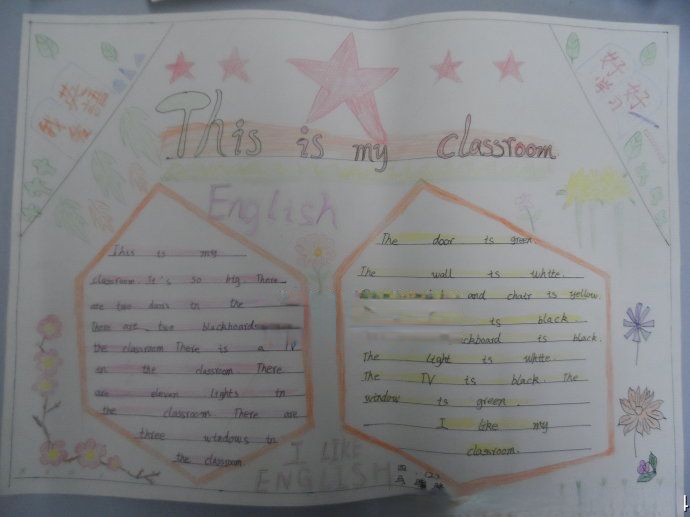 我爱
英語
好好
学习
This is my classroom
English
This is my
classroom. It's so big There
are two doors in the
there are two blackboard
the classroom There is a TV
in the classroom There
are eleven lights in
the classroom There are
three windows in
the classroom.
The door is green.
The wall is white.
and chair is yellow.
is black.
ckboard is black.
The light is white.
The TV is black. The
window is green.
I like my
classroom.
I LIKE
ENGLISH